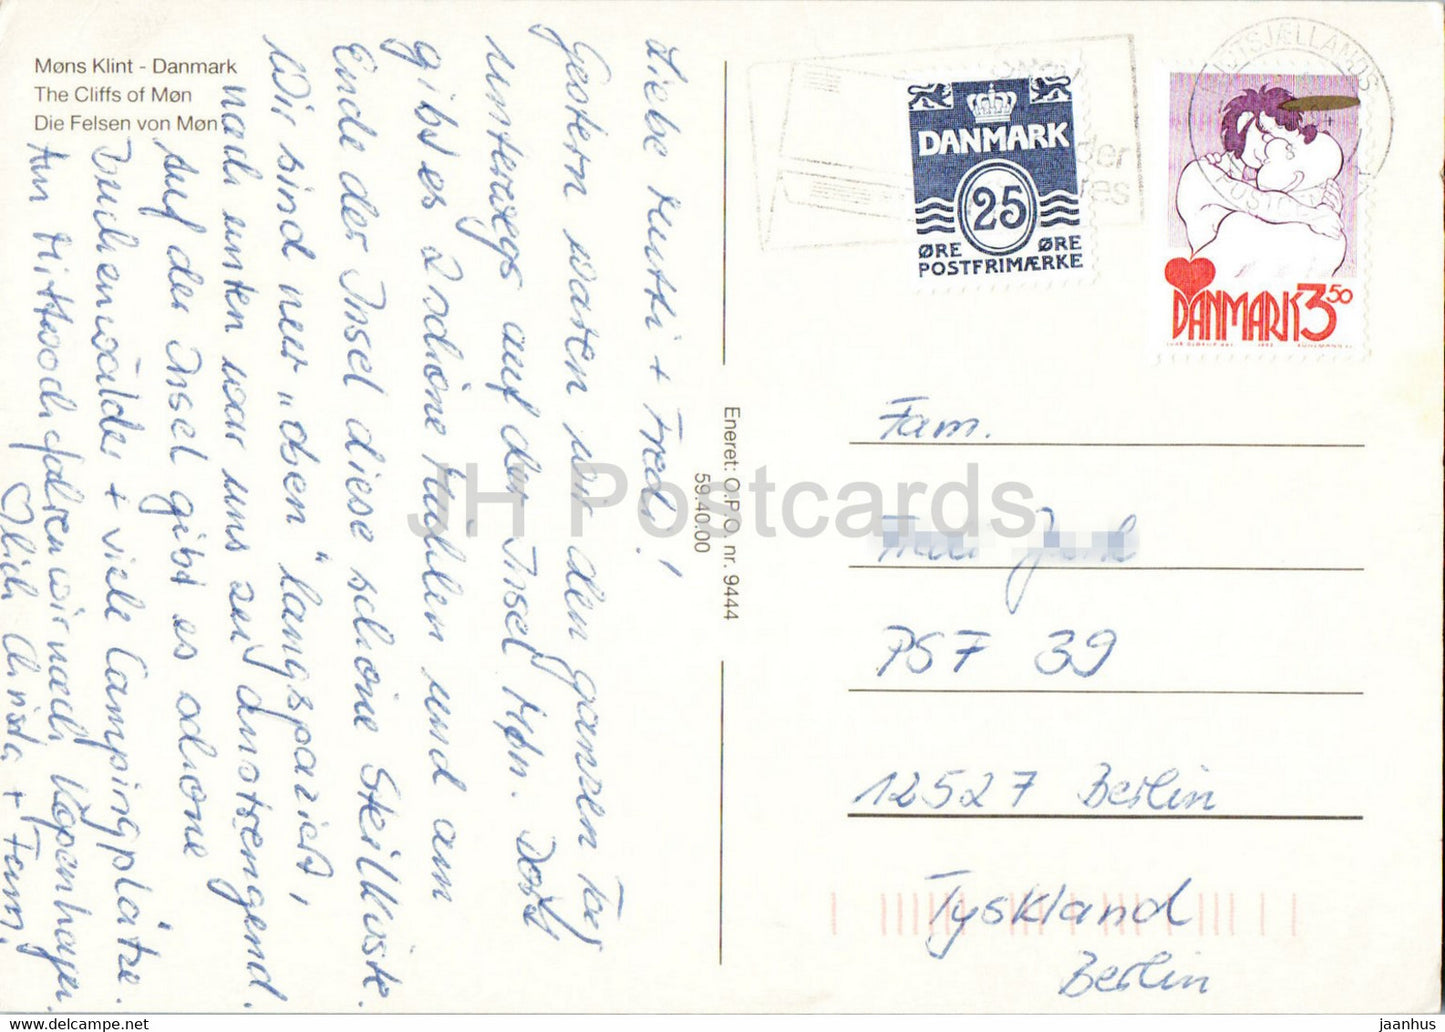 Møns Klint - Danmark
The Cliffs of Møn
Die Felsen von Møn
Liebe Mutti + Fredi!
Gestern waren wir den ganzen Tag
unterwegs auf der Insel Møn. Dort
gibt es 2 schöne Mühlen und am
Ende der Insel diese schöne Steilküste.
Wir sind nur "oben" langspaziert,
nach unten war uns zu anstrengend.
Auf der Insel gibt es schöne
Buchenwälder + viele Campingplätze.
Am Mittwoch fahren wir nach Kopenhagen.
Christa + Fam.
Eneret: O.P.O. nr. 9444
59.40.00
DANMARK
25
ØRE ØRE
POSTFRIMÆRKE
DANMARK 3.50
1992
Fam.
PSF 39
12527 Berlin
Tyskland
Berlin
JH Postcards
jaanhus